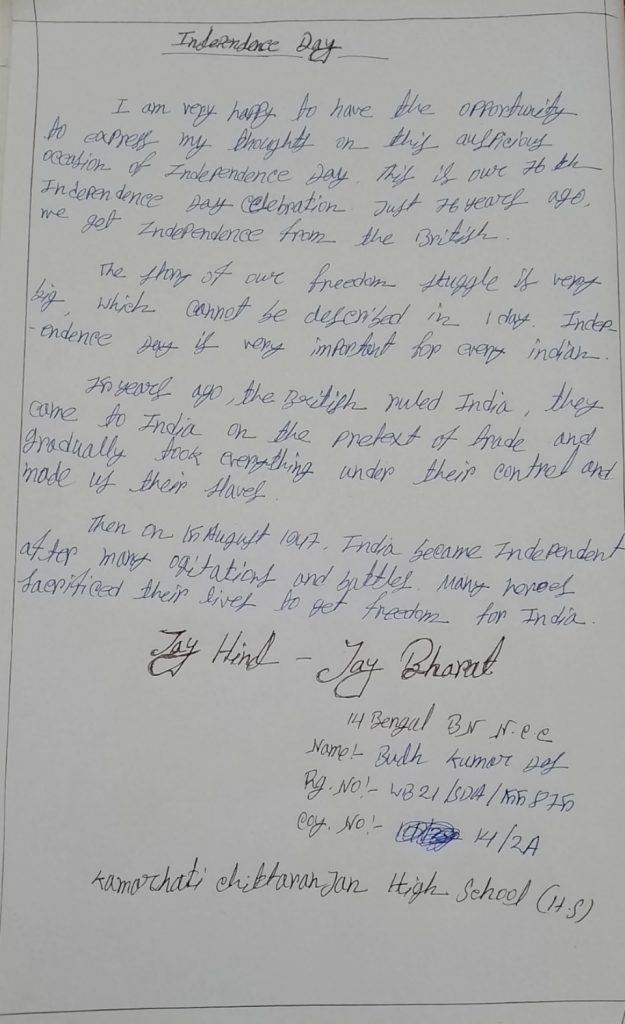 Independence Day
I am very happy to have the opportunity
to express my thoughts on this auspicious
occasion of Independence Day. This is our 76 th
Independence Day celebration. Just 76 years ago,
we get Independence from the British.
The story of our freedom stuggle is very
big, which cannot be described in 1 day. Indep
-endence Day is very important for every indian.
years ago, the British ruled India, they
came to India on the pretext of trade and
gradually took everything under their control and
made us their slaves.
Then on 15 August 1947, India became Independent
after many agitations and battles. Many heroes
sacrificed their lives to get freedom for India.
Jay Hind - Jay Bharat
14 Bengal BN N.C.C
Name:- Budh Kumar Das
Rg. No:- WB21/SDA/
Coy. No:- 14/2A
Kamarhati Chittaranjan High School (H.S)